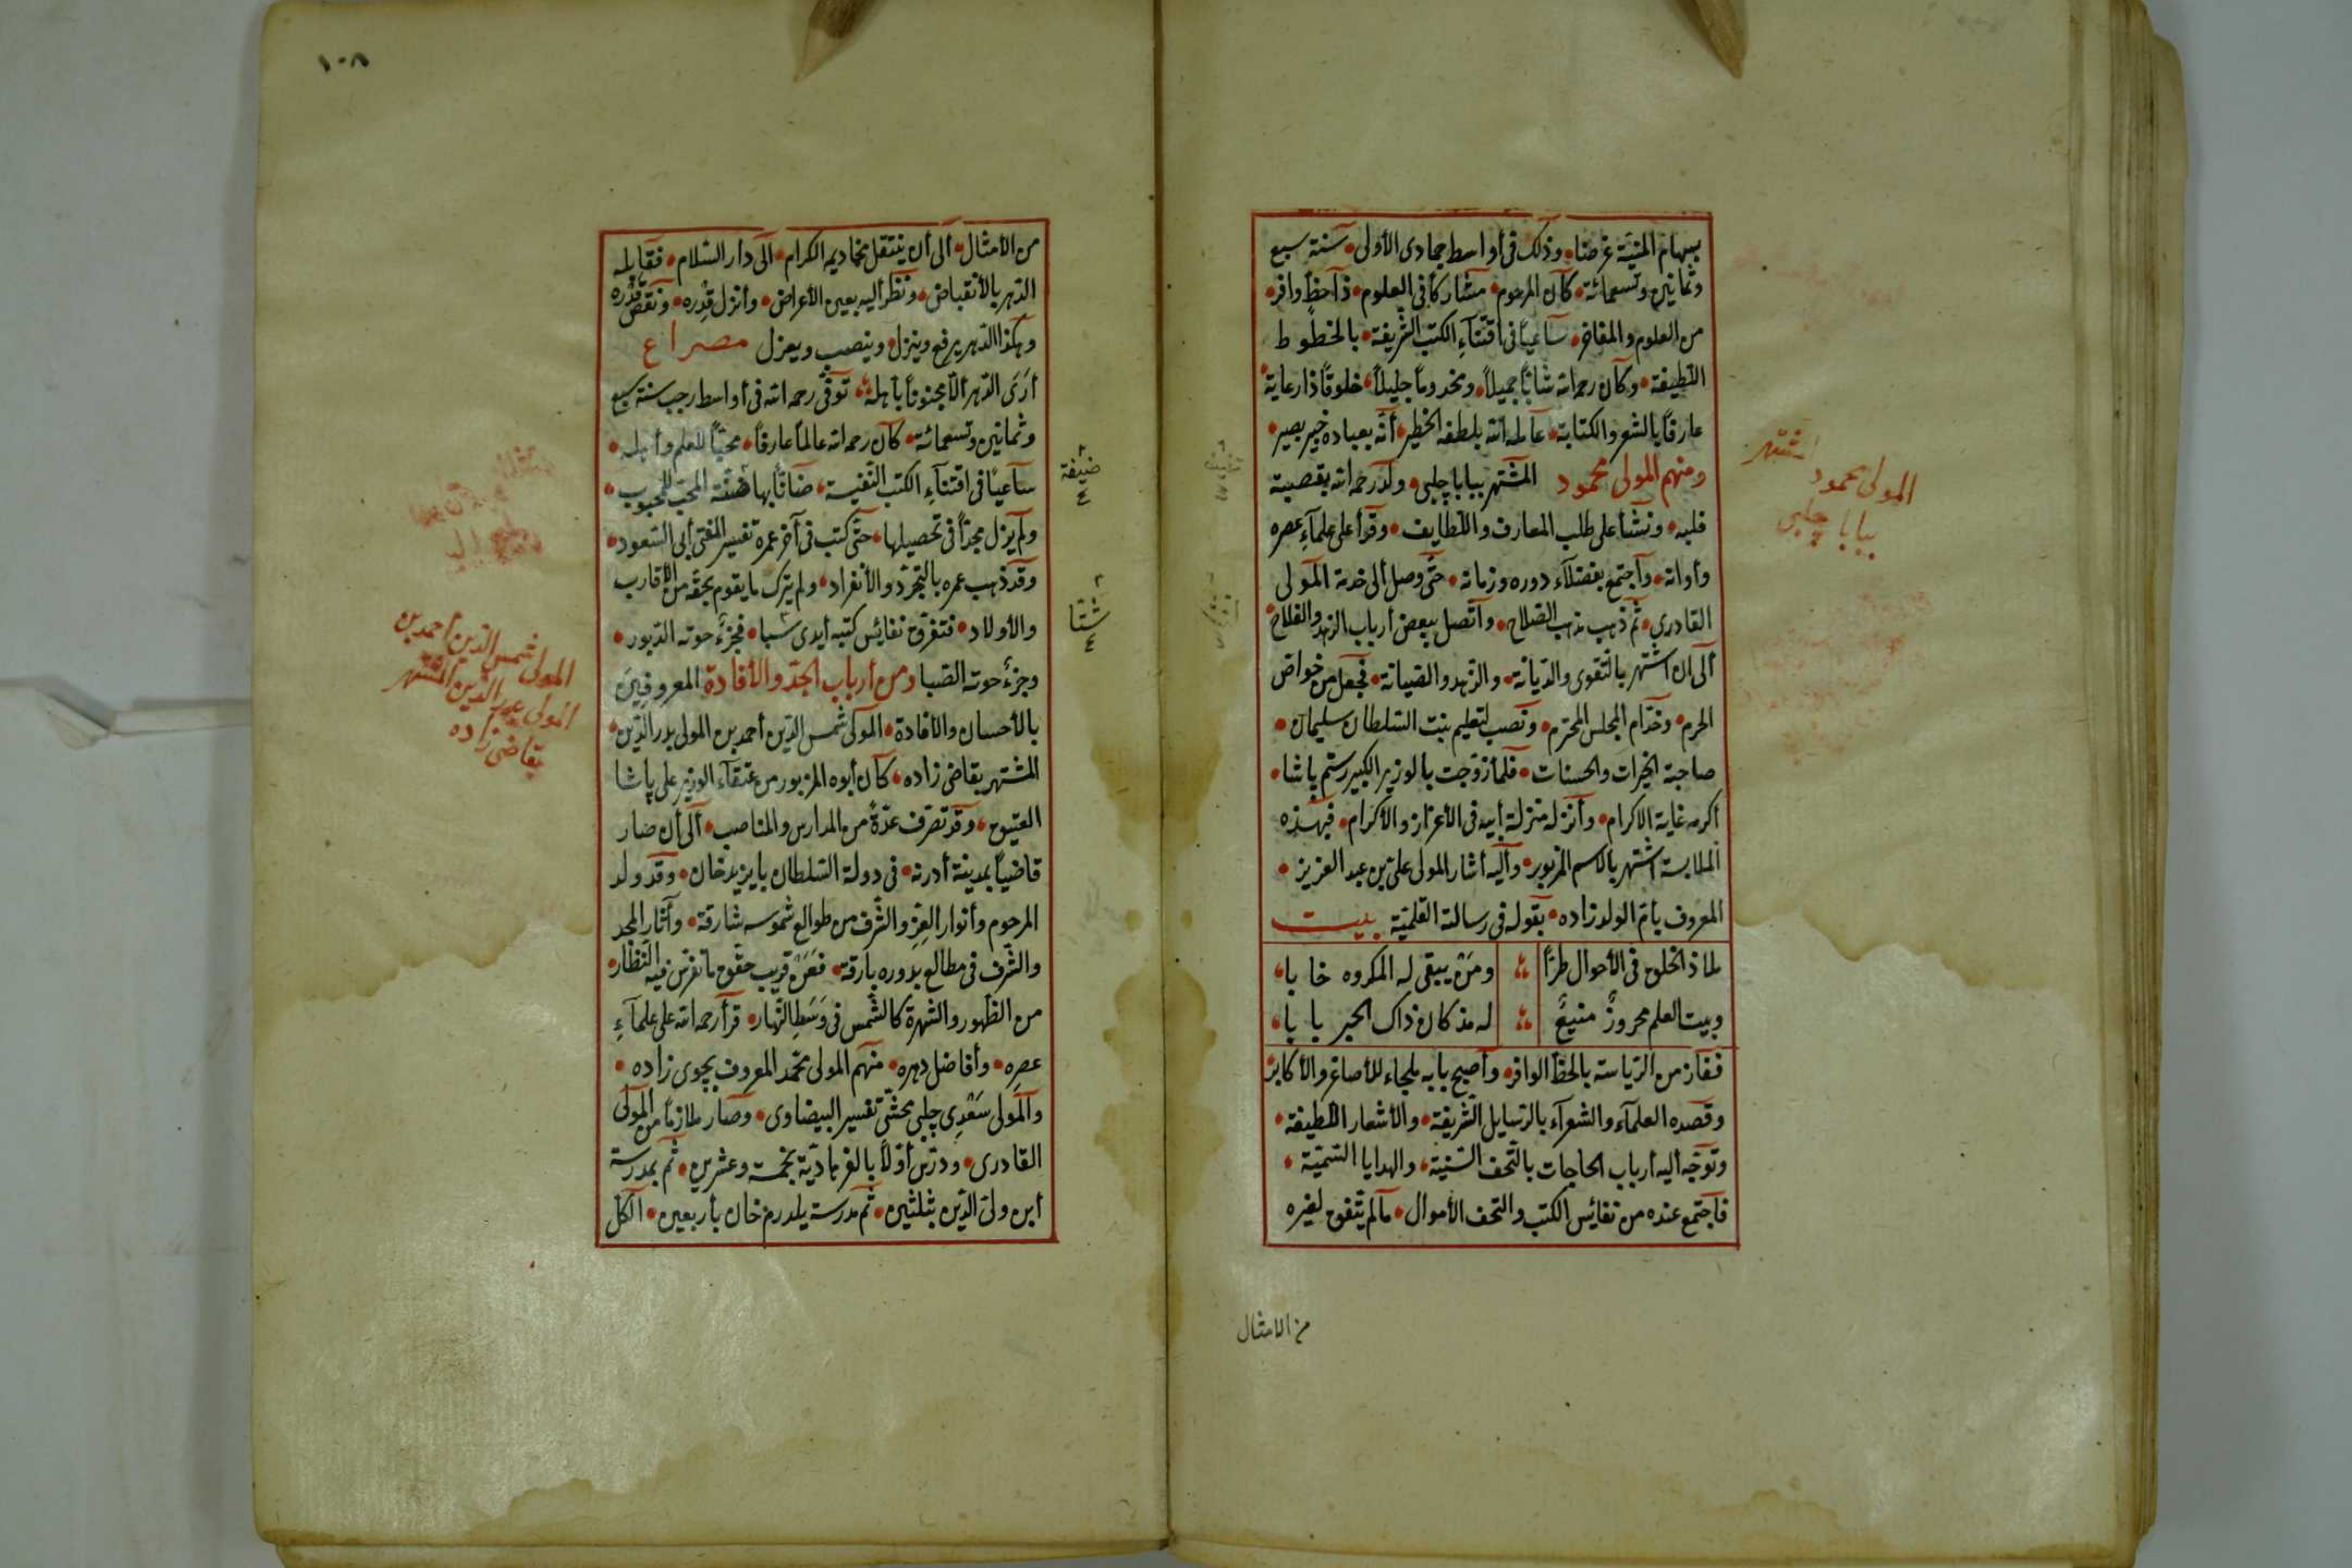 بسهام المنيّة غرضا وذلك فى أواسط جمادى الأولى سنة سبع
وثمانين وتسعمائة كان المرحوم مشاركا فى العلوم ذا حظ وافر
من العلوم والمفاخر ساعيا فى اقتناء الكتب الشريفة بالخطوط
اللطيفة وكان رحمه الله شابّا جميلا ومخدوما جليلا خلوقا ذا رعاية
عارفا بالشعر والكتابة عامله الله بلطفه الخطير أنّه بعباده خبير بصير
ومنهم المولى محمود المشتهر ببابا چلبى ولد رحمه الله بقصبة
قلبه ونشأ على طلب المعارف واللطايف وقرأ على علماء عصره
وأوانه واجتمع بفضلاء دوره وزمانه حتّى وصل ألى خدمة المولى
القادرى ثم ذهب مذهب الصلاح واتّصل ببعض أرباب الزهد والفلاح
ألى ان اشتهر بالتّقوى والديانة والزهد والصيانة فجعل من خواص
الحرم وخدّام المجلس المحترم ونصب لتعليم بنت السلطان سليمان
صاحبة الخيرات والحسنات فلما زوّجت بالوزير الكبير رستم پاشا
أكرمه غاية الاكرام وأنزله منزلة أبيه فى الأعزاز والأكرام فبهذه
الملابسة اشتهر بالاسم المزبور وأليه أشار المولى على بن عبد العزيز
المعروف بأمّ الولد زاده بقوله فى رسالة القلميّة بيت
لماذ الخلق فى الأحوال طرّا ومن يبقى له المكروه خابا
وبيت العلم محروز منيع له مذ كان ذاك الحبر بابا
ففاز من الرّياسة بالحظّ الوافر وأصبح بابه ملجاء للأصاغر والأكابر
وقصده العلماء والشعراء بالرسايل الشريفة والأشعار اللطيفة
وتوجّه أليه أرباب الحاجات بالتّحف السّنيّة والهدايا السّميّة
فاجتمع عنده من نفائس الكتب والتحف الأموال مالم يتّفق لغيره
من الامثال
المولى محمود اشتهر
ببابا چلبى
١٠٨
من الأمثال ألى أن ينتقل مخاديمه الكرام ألى دار السّلام فقابله
الدّهر بالأنقباض ونظر أليه بعين الأعراض وأنزل قدره ونقص قدره
وهكذا الدّهر يرفع وينزل وينصب ويعزل مصراع
أرى الدّهر الّا مجنونا بأهله توفّى رحمه الله فى أواسط رجب سنة سبع
وثمانين وتسعمائة كان رحمه الله عالما عارفا محبّا للعلم وأهله
ساعيا فى اقتناء الكتب النّفيسة ضانّا بها ضنّة المحبّ للمحبوب
ولم يزل مجدّا فى تحصيلها حتّى كتب فى آخر عمره تفسير المفتى أبى السّعود
وقد ذهب عمره بالتّجرّد والأنفراد ولم يترك ما يقوم بحقّه من الأقارب
والأولاد فتفرّق نفائس كتبه أيدى سبا فجزء حوته الدّبور
وجزء حوته الصّبا ومن أرباب الجدّ والأفادة المعروفين
بالأحسان والأفادة المولى شمس الدّين أحمد بن المولى بدر الدّين
المشتهر بقاضى زاده كان أبوه المزبور من عتقاء الوزير على پاشا
العتيق وقد تصرّف عدّة من المدارس والمناصب ألى أن صار
قاضيا بمدينة أدرنه فى دولة السّلطان بايزيد خان وقد ولد
المرحوم وأنوار العزّ والشّرف من طوالع شموسه شارقة وآثار المجد
والشّرف فى مطالع بدوره بارقة فعن قريب حقّق ما تفرّس فيه النّظار
من الظّهور والشّهرة كالشّمس فى وسط النّهار قرأ رحمه الله على علماء
عصره وأفاضل دهره منهم المولى محمّد المعروف بچوى زاده
والمولى سعدى چلبى محشّى تفسير البيضاوى وصار ملازما من المولى
القادرى ودرّس أوّلا بالفرهاديّة بخمسة وعشرين ثم بمدرسة
أبن ولىّ الدّين بثلثين ثم مدرسة يلدرم خان بأربعين الكلّ
المولى شمس الدين أحمد بن
المولى بدر الدين المشتهر
بقاضى زاده